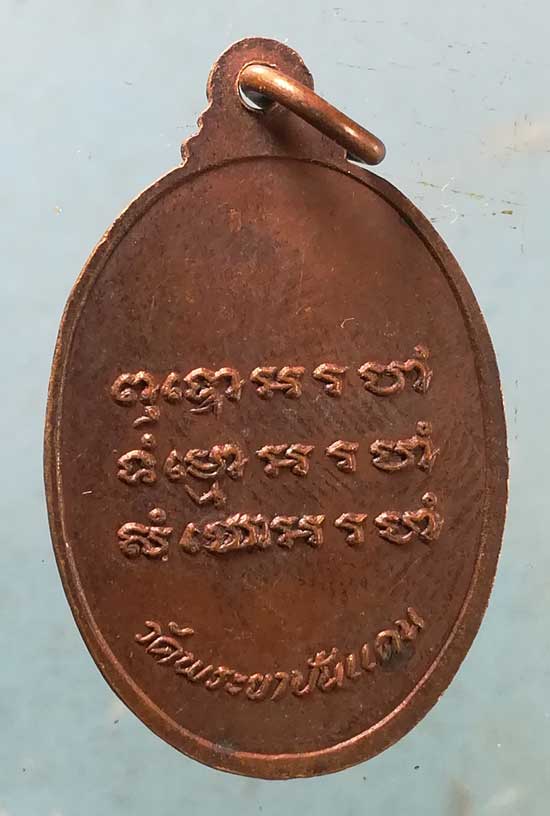 ពុទ្ធោអរហំ
ធំម្មោអរហំ
សំឃោអរហំ
วัดพระยาปันแดน